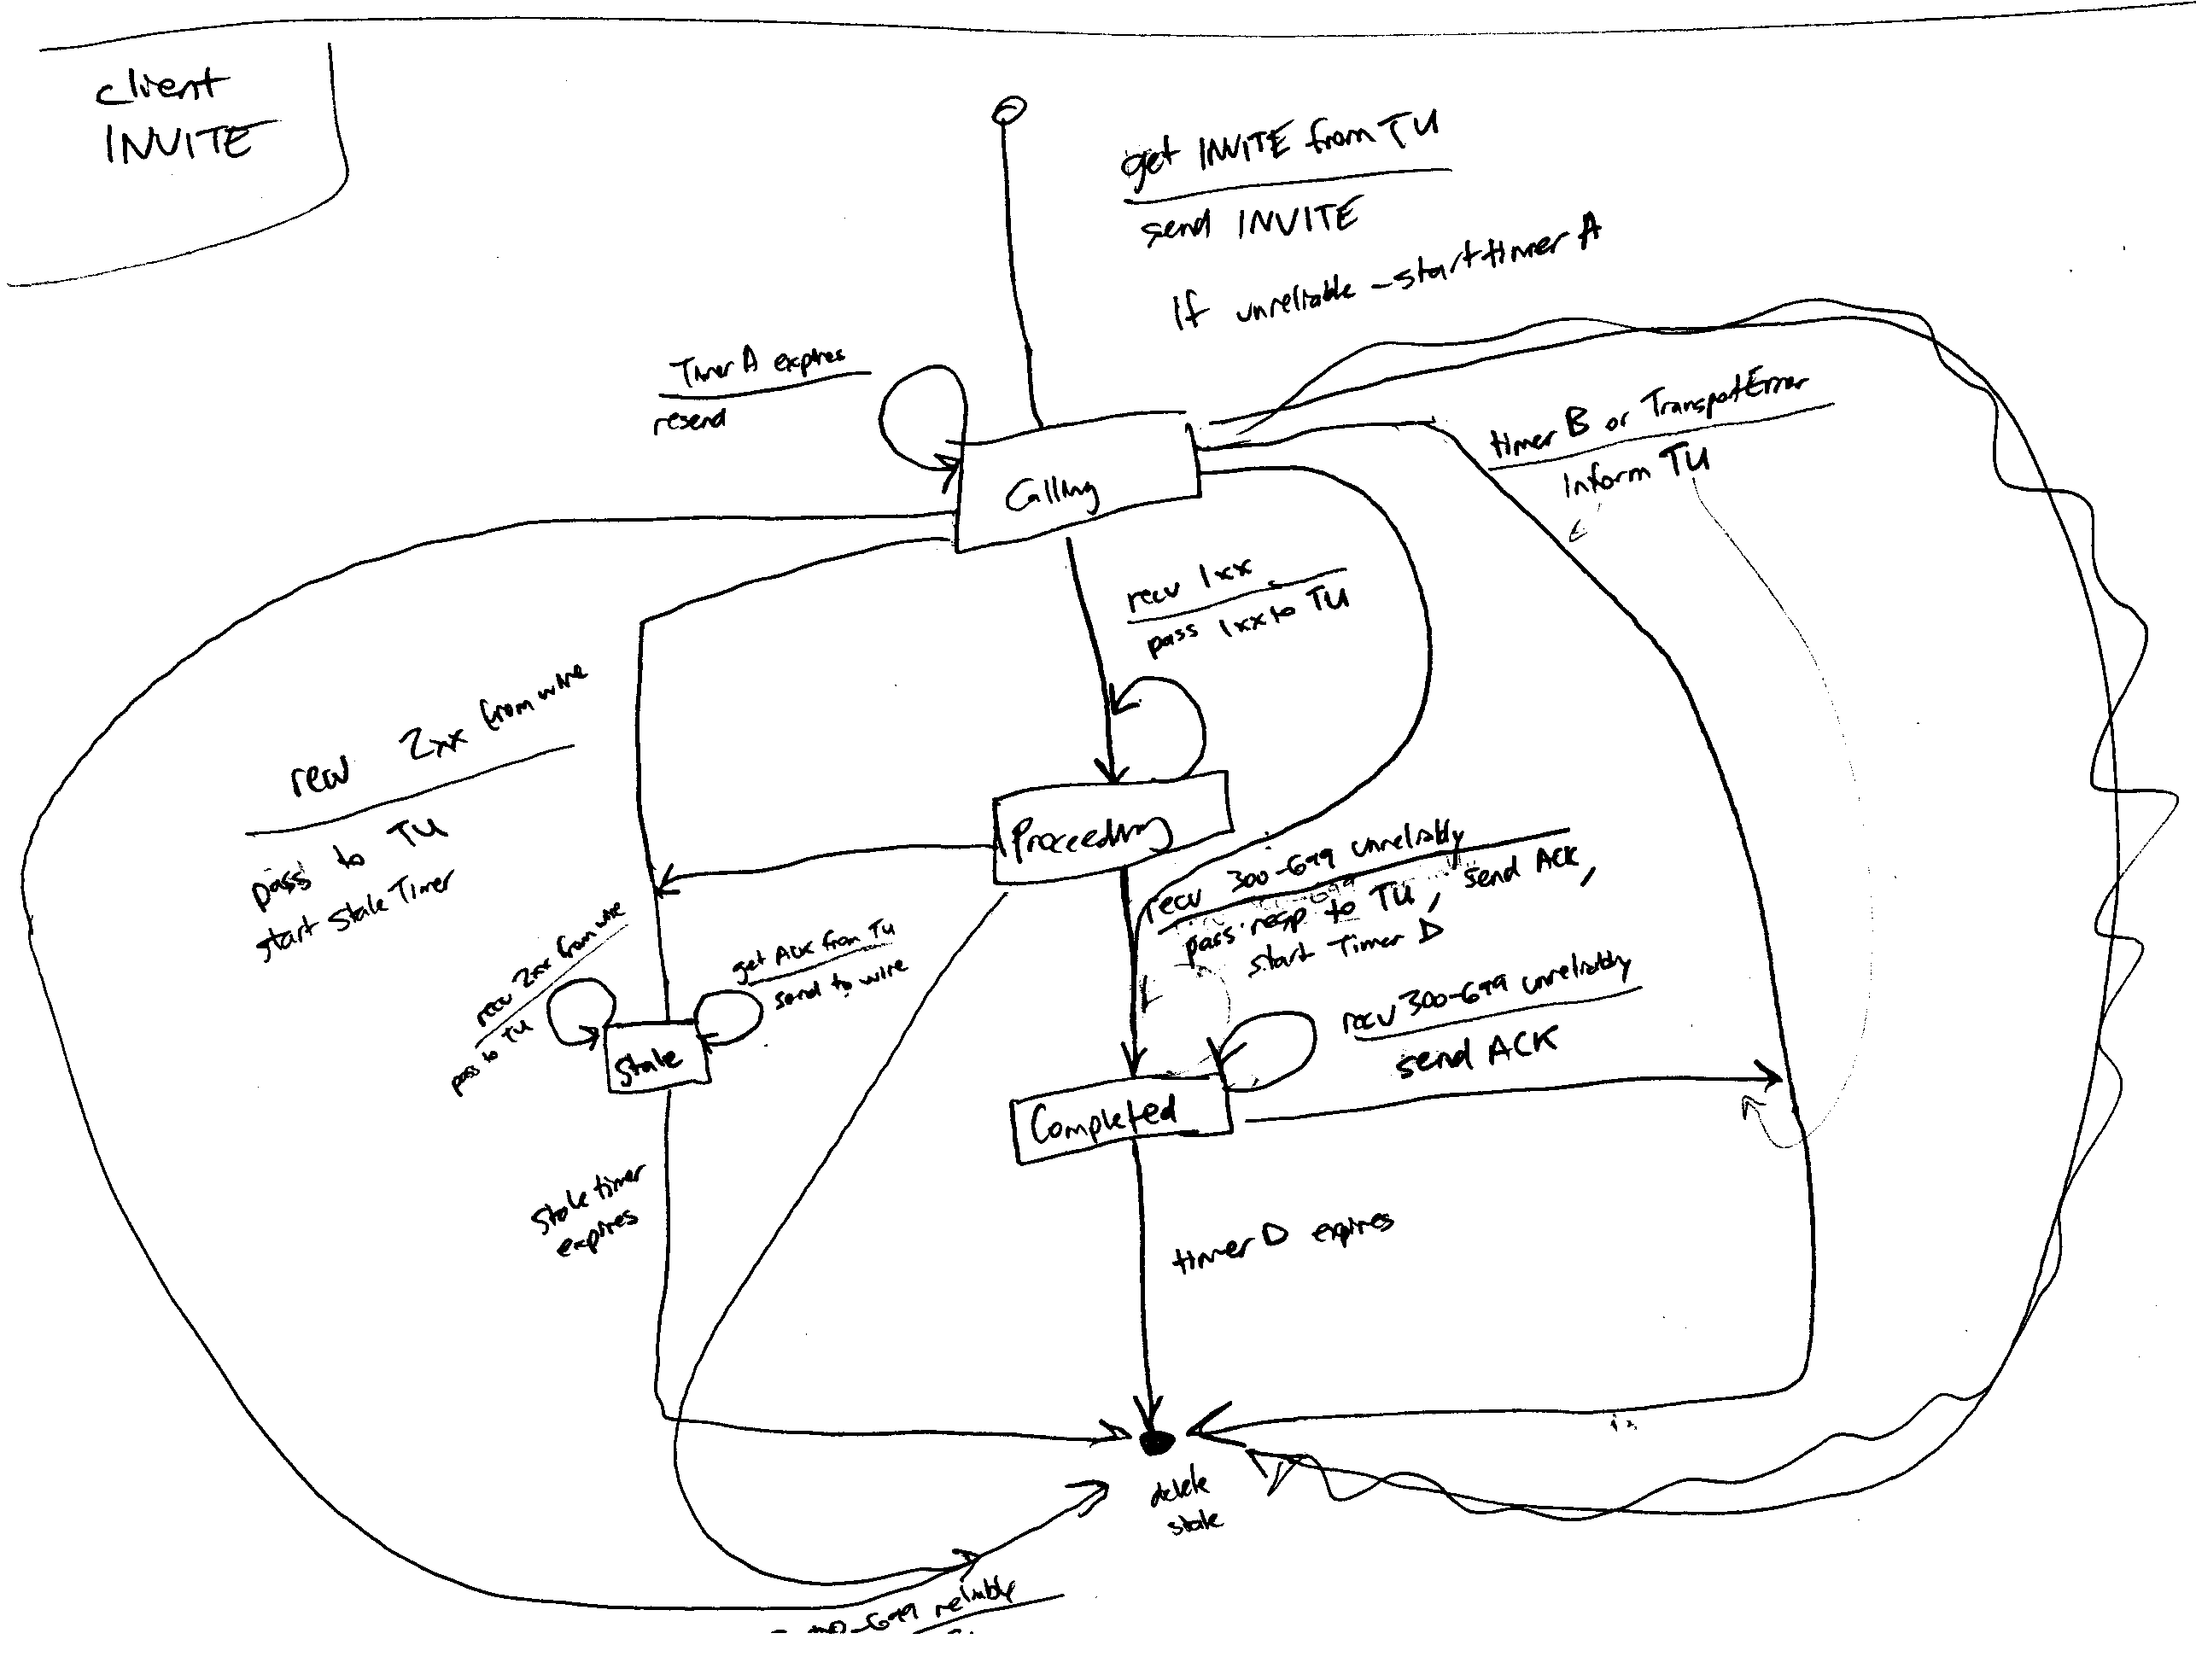 client
INVITE
get INVITE from TU
send INVITE
If unreliable - start timer A
Timer A expires
resend
timer B or TransportError
Inform TU
Calling
recv 1xx
pass 1xx to TU
recv 2xx from wire
pass to TU
start Stale Timer
Proceeding
recv 300-699 unreliably
pass resp to TU, send ACK,
start Timer D
recv 2xx from wire
pass to TU
get ACK from TU
send to wire
Stale
recv 300-699 unreliably
send ACK
Completed
Stale timer
expires
timer D expires
delete
state
-699 reliably